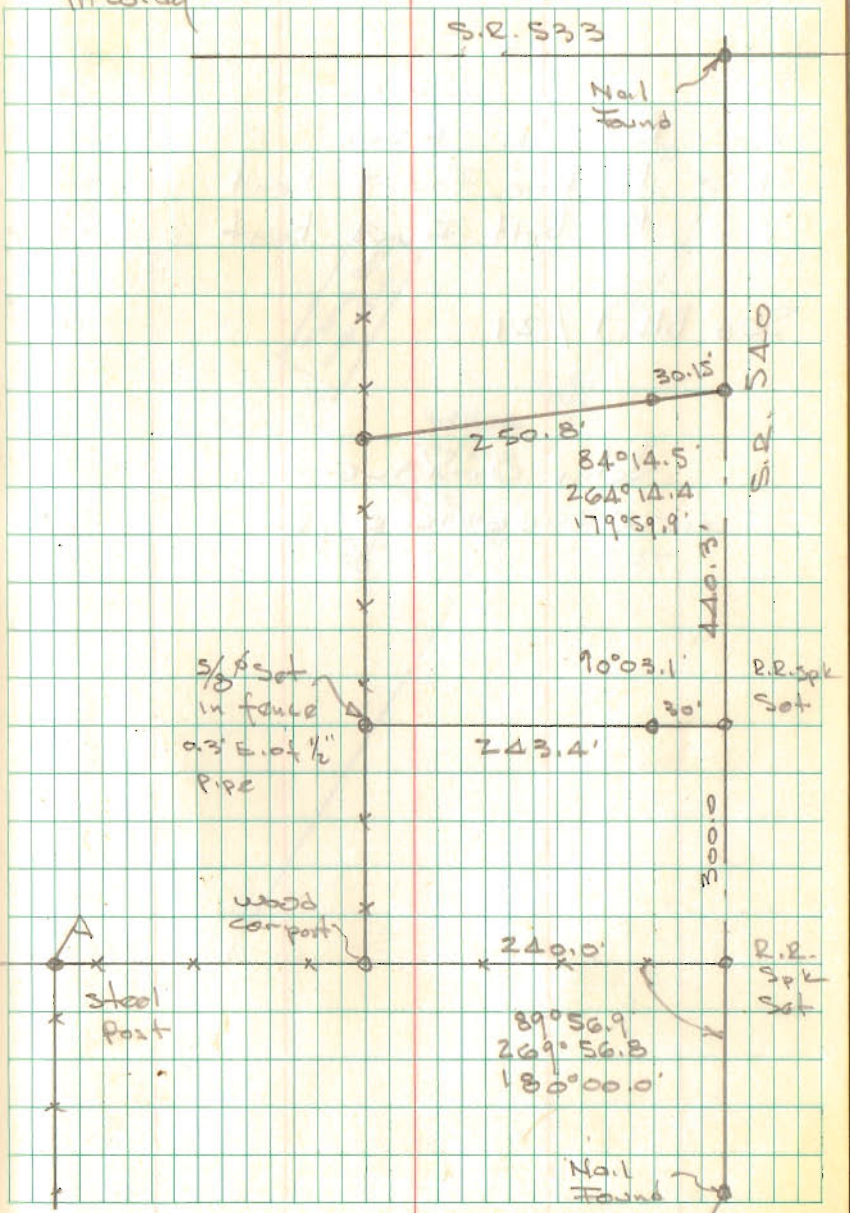 S.R. 533
Nail
Found
30.15'
S.R. 540
250.8'
84°14.5'
264°14.4
179°59.9'
440.3'
90°03.1'
R.R. Spk
Set
5/8 ϕ Set
in fence
0.3' E. of 1/2"
pipe
30'
243.4'
300.0
wood
cor post
A
240.0'
R.R.
Spk
Set
steel
Post
89°56.9'
269°56.8
180°00.0'
Nail
Found